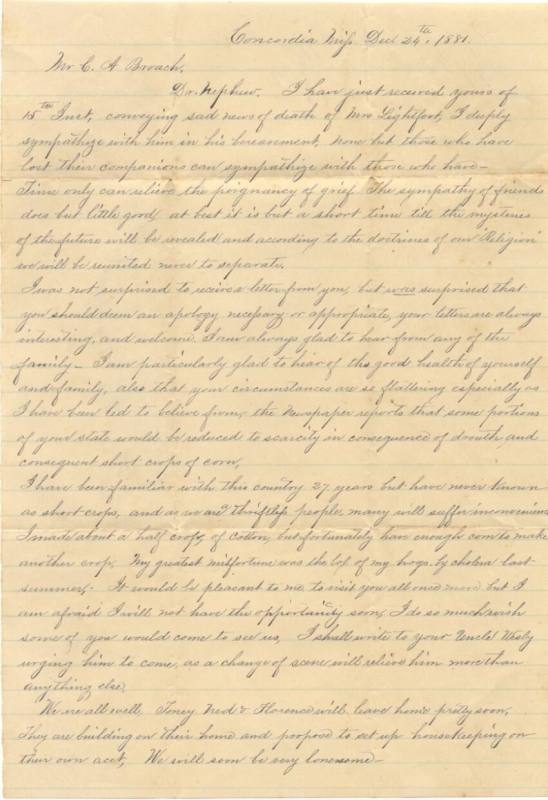 Concordia Miss Dec 24th, 1881.
Mr C. A Broach,
Dr. Nephew. I have just received yours of
15th Inst, conveying sad news of death of Mrs Lightfoot, I deeply
sympathize with him in his bereavment, none but those who have
lost their companions can sympathize with those who have—
Time only can relieve the poignancy of grief The sympathy of friends
does but little good at best it is but a short time till the mysteries
of the future will be revealed and according to the doctrines of our "Religion"
we will be reunited never to separate.
I was not surprised to receive a letter from you, but was surprised that
you should deem an apology necessary or appropriate, your letters are always
interesting, and welcome. I am always glad to hear from any of the
family— I am particularly glad to hear of the good health of yourself
and family, also that your circumstances are so flattering especially as
I have been led to believe from, the Newspaper reports that some portions
of your state would be reduced to scarcity in consequence of drouth, and
consequent short crops of corn,
I have been familiar with this country 27 years but have never known
as short crops, and as we are thriftless people, many will suffer inconvenience
I made about a half crop, of cotton, but fortunately have enough corn to make
another crop. My greatest misfortune was the loss of my hogs by cholera last
summer,. It would be pleasant to me to visit you all once more but I
am afraid I will not have the opportunity soon, I do so much wish
some of you would come to see us, I shall write to your Uncle Wesly
urging him to come, as a change of scene will relieve him more than
anything else.
We are all well, Toney Ned & Florence will leave home pretty soon,
They are building on their home and propose to set up housekeeping on
their own acct, We will soon be very lonesome—